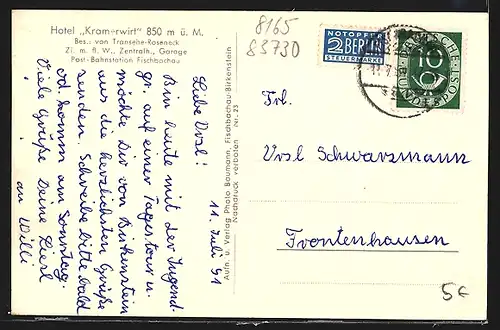 Hotel „Kramerwirt" 850 m ü. M.
Bes.: von Transehe-Roseneck
Zi. m. B. W., Zentralh., Garage
Post-Bahnstation Fischbachau
8165
83730
NOTOPFER
2 BERLIN
STEUERMARKE
DEUTSCHE
10
POST
11. Juli 51
Liebe Ursl!
Bin heute mit der Jugend-
gr. auf einer Tagestour u.
möchte Dir von Birkenstein
aus die herzlichsten Grüße
senden. Schreibe bitte bald
od. komm am Sonntag.
Viele Grüße Deine Liesl
an Willi
Aufn. u. Verlag Photo Baumann, Fischbachau-Birkenstein
Nachdruck verboten Nr. 23
Frl.
Ursl Schwarzmann
Frontenhausen
5€